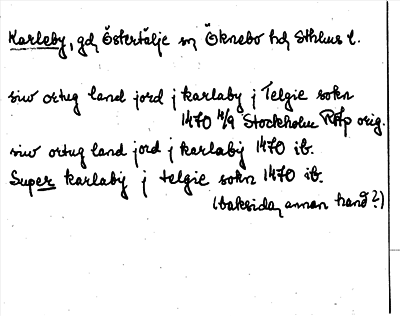 Karleby, gd, Östertälje sn Öknebo hd Sthlms l.
siw ortug land jord j karlaby j Telgie sokn
1470 14/9 Stockholm RAp orig.
siw ortug land jord j karlaby 1470 ib.
Super karlaby j telgie sokn 1470 ib.
(baksidan, annan hand?)